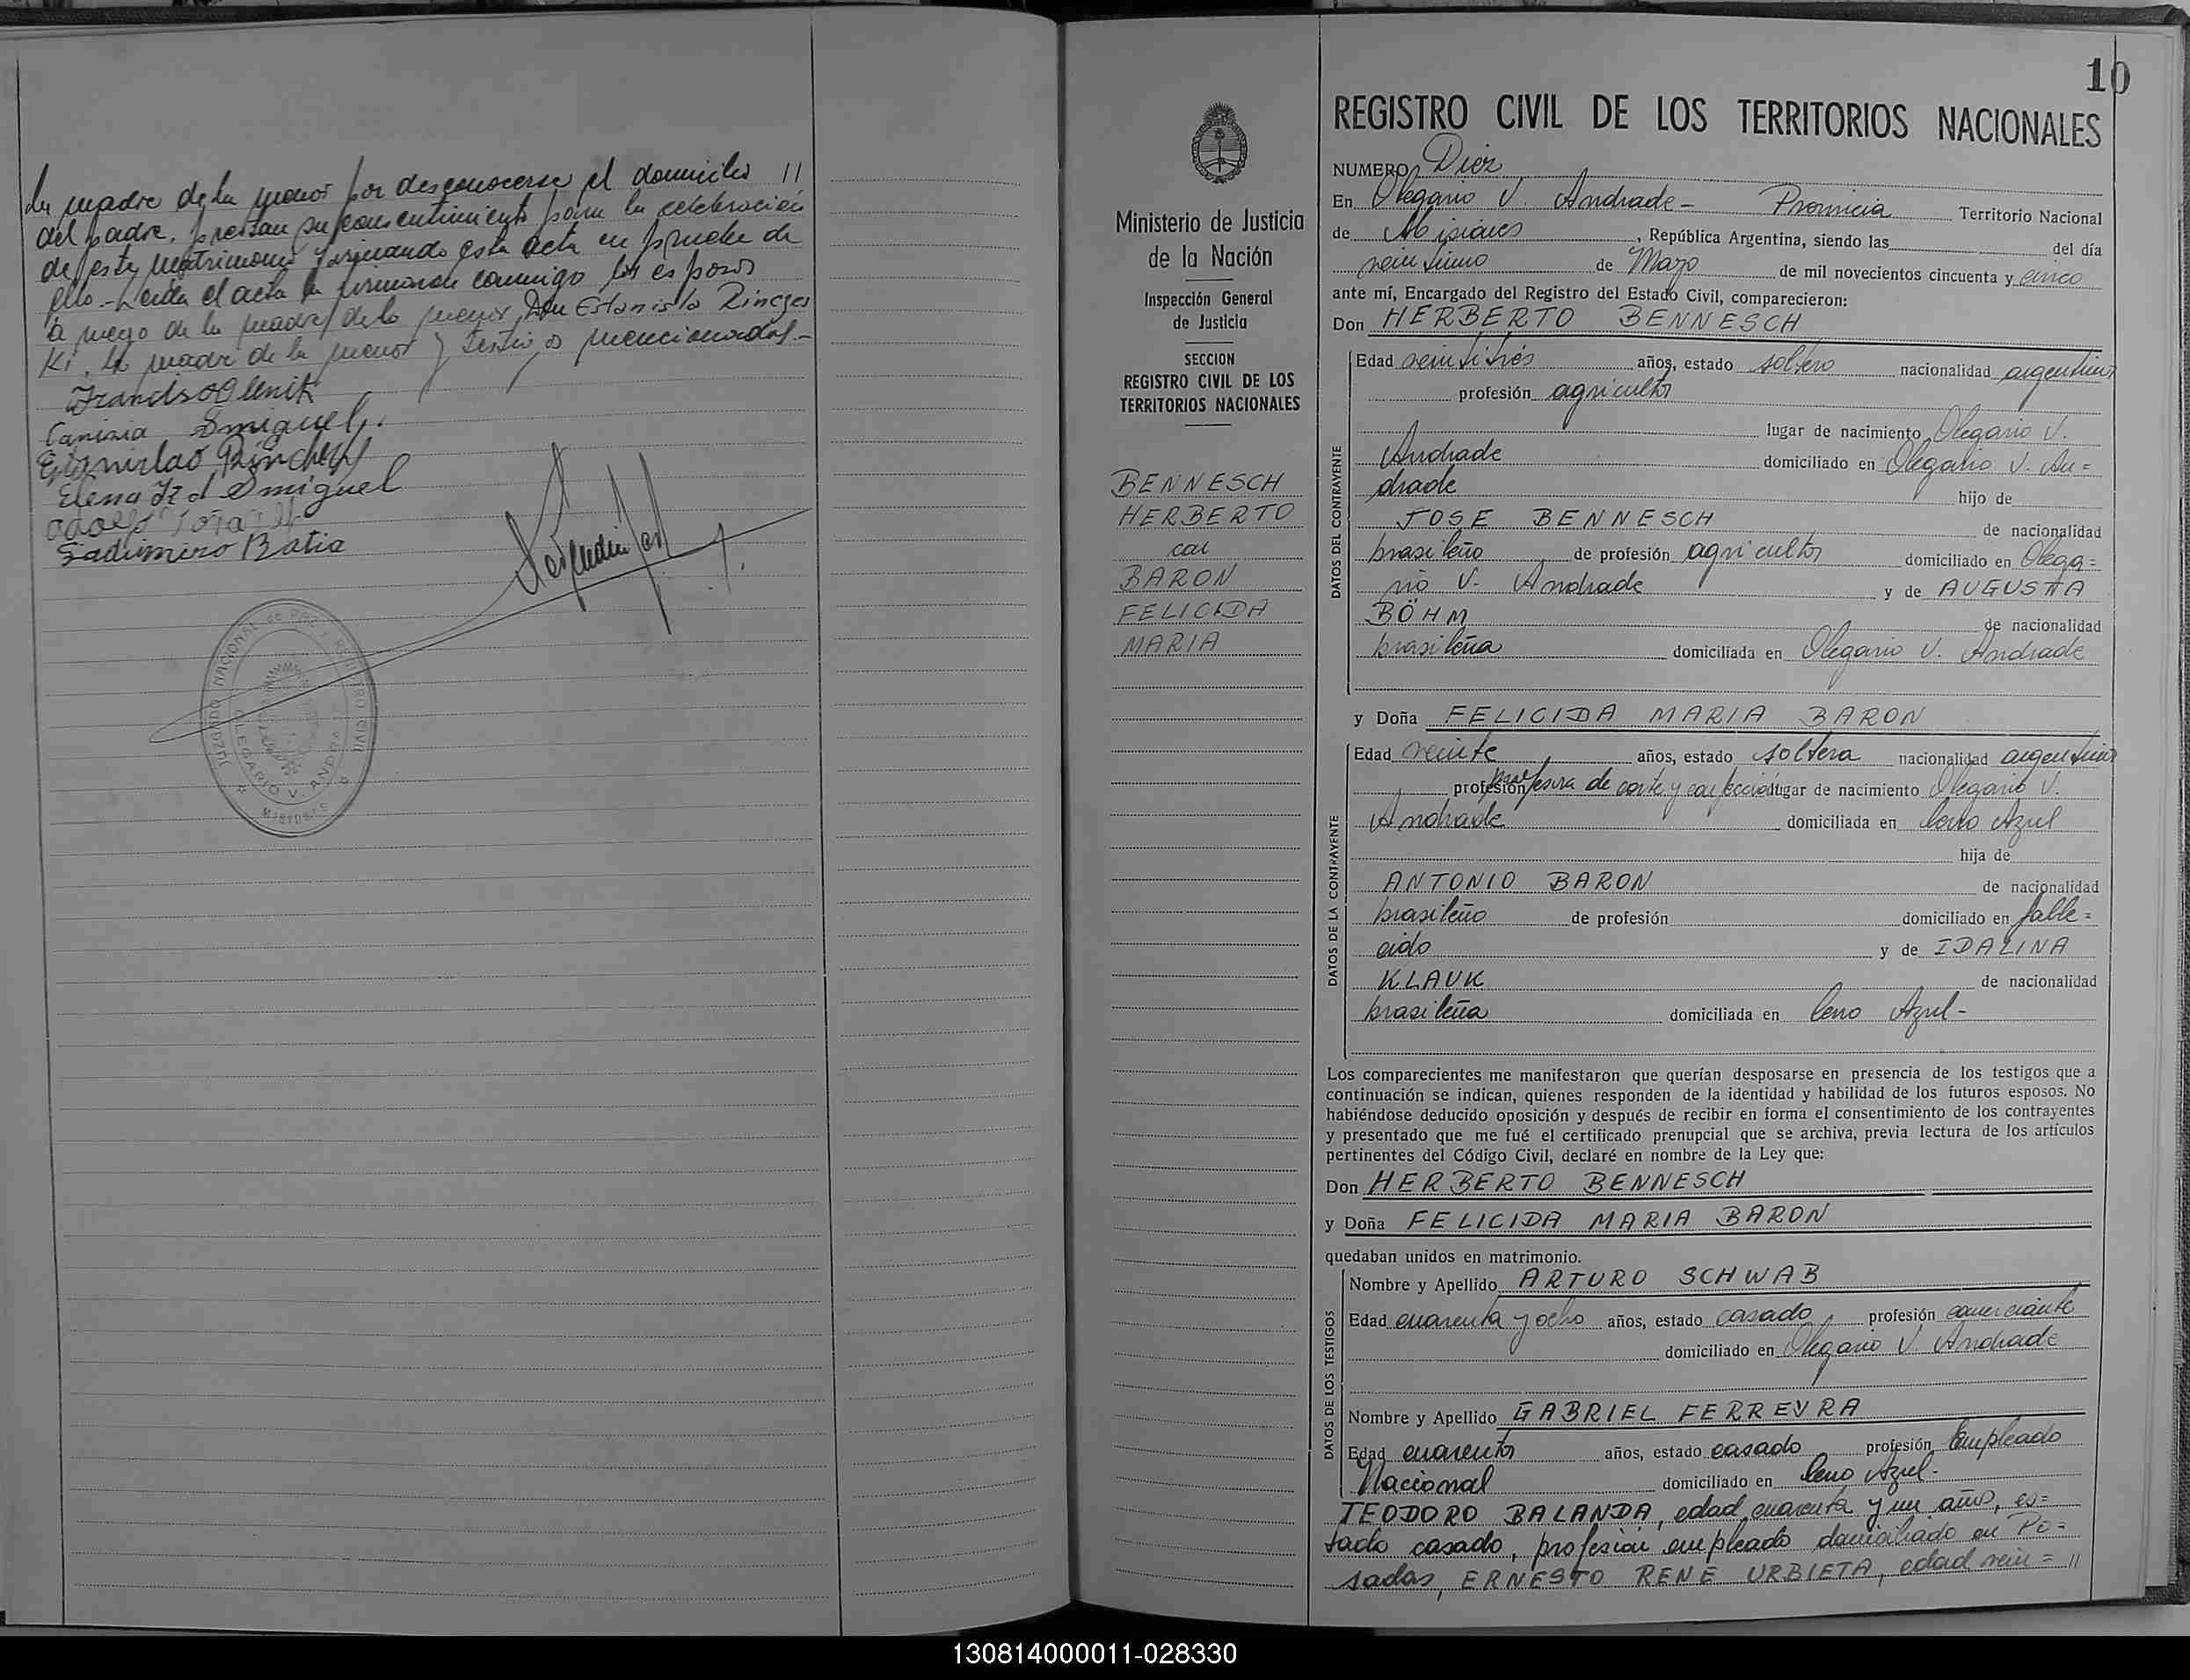 La madre de la menor por desconocerse el domicilio //
del padre, prestan su consentimiento para la celebración
de este matrimonio firmando esta acta en prueba de
ello.- Leida el acta la firmaron conmigo los esposos
a ruego de la madre de la menor, Don Estanislao
Ki, la madre de la menor y testigos mencionados.-
Canisia Smiguel
Estanislao
Elena Smiguel
Ladimiro Batia
JUZGADO NACIONAL de PAZ y REGISTRO CIVIL
OLEGARIO V. ANDRADE
MISIONES
10
Ministerio de Justicia
de la Nación
Inspección General
de Justicia
SECCION
REGISTRO CIVIL DE LOS
TERRITORIOS NACIONALES
BENNESCH
HERBERTO
con
BARON
FELICIDA
MARIA
REGISTRO CIVIL DE LOS TERRITORIOS NACIONALES
NUMERO Diez
En Olegario V. Andrade - Provincia Territorio Nacional
de Misiones, República Argentina, siendo las del día
veintiuno de Mayo de mil novecientos cincuenta y cinco
ante mí, Encargado del Registro del Estado Civil, comparecieron:
Don HERBERTO BENNESCH
DATOS DEL CONTRAYENTE
Edad veintitrés años, estado soltero nacionalidad argentino
profesión agricultor
lugar de nacimiento Olegario V.
Andrade domiciliado en Olegario V. An=
drade hijo de
JOSE BENNESCH de nacionalidad
brasileño de profesión agricultor domiciliado en Olega=
rio V. Andrade y de AUGUSTA
BÖHM de nacionalidad
brasileña domiciliada en Olegario V. Andrade
y Doña FELICIDA MARIA BARON
DATOS DE LA CONTRAYENTE
Edad veinte años, estado soltera nacionalidad argentina
profesión profesora de corte y confección lugar de nacimiento Olegario V.
Andrade domiciliada en Cerro Azul
hija de
ANTONIO BARON de nacionalidad
brasileño de profesión domiciliado en falle=
cido y de IDALINA
KLAUK de nacionalidad
brasileña domiciliada en Cerro Azul-
Los comparecientes me manifestaron que querían desposarse en presencia de los testigos que a
continuación se indican, quienes responden de la identidad y habilidad de los futuros esposos. No
habiéndose deducido oposición y después de recibir en forma el consentimiento de los contrayentes
y presentado que me fué el certificado prenupcial que se archiva, previa lectura de los artículos
pertinentes del Código Civil, declaré en nombre de la Ley que:
Don HERBERTO BENNESCH
y Doña FELICIDA MARIA BARON
quedaban unidos en matrimonio.
DATOS DE LOS TESTIGOS
Nombre y Apellido ARTURO SCHWAB
Edad cuarenta y ocho años, estado casado profesión comerciante
domiciliado en Olegario V. Andrade
Nombre y Apellido GABRIEL FERREYRA
Edad cuarenta años, estado casado profesión Empleado
Nacional domiciliado en Cerro Azul-
TEODORO BALANDA, edad cuarenta y un años, es=
tado casado, profesión empleado domiciliado en Po=
sadas, ERNESTO RENE URBIETA, edad vein= //
130814000011-028330